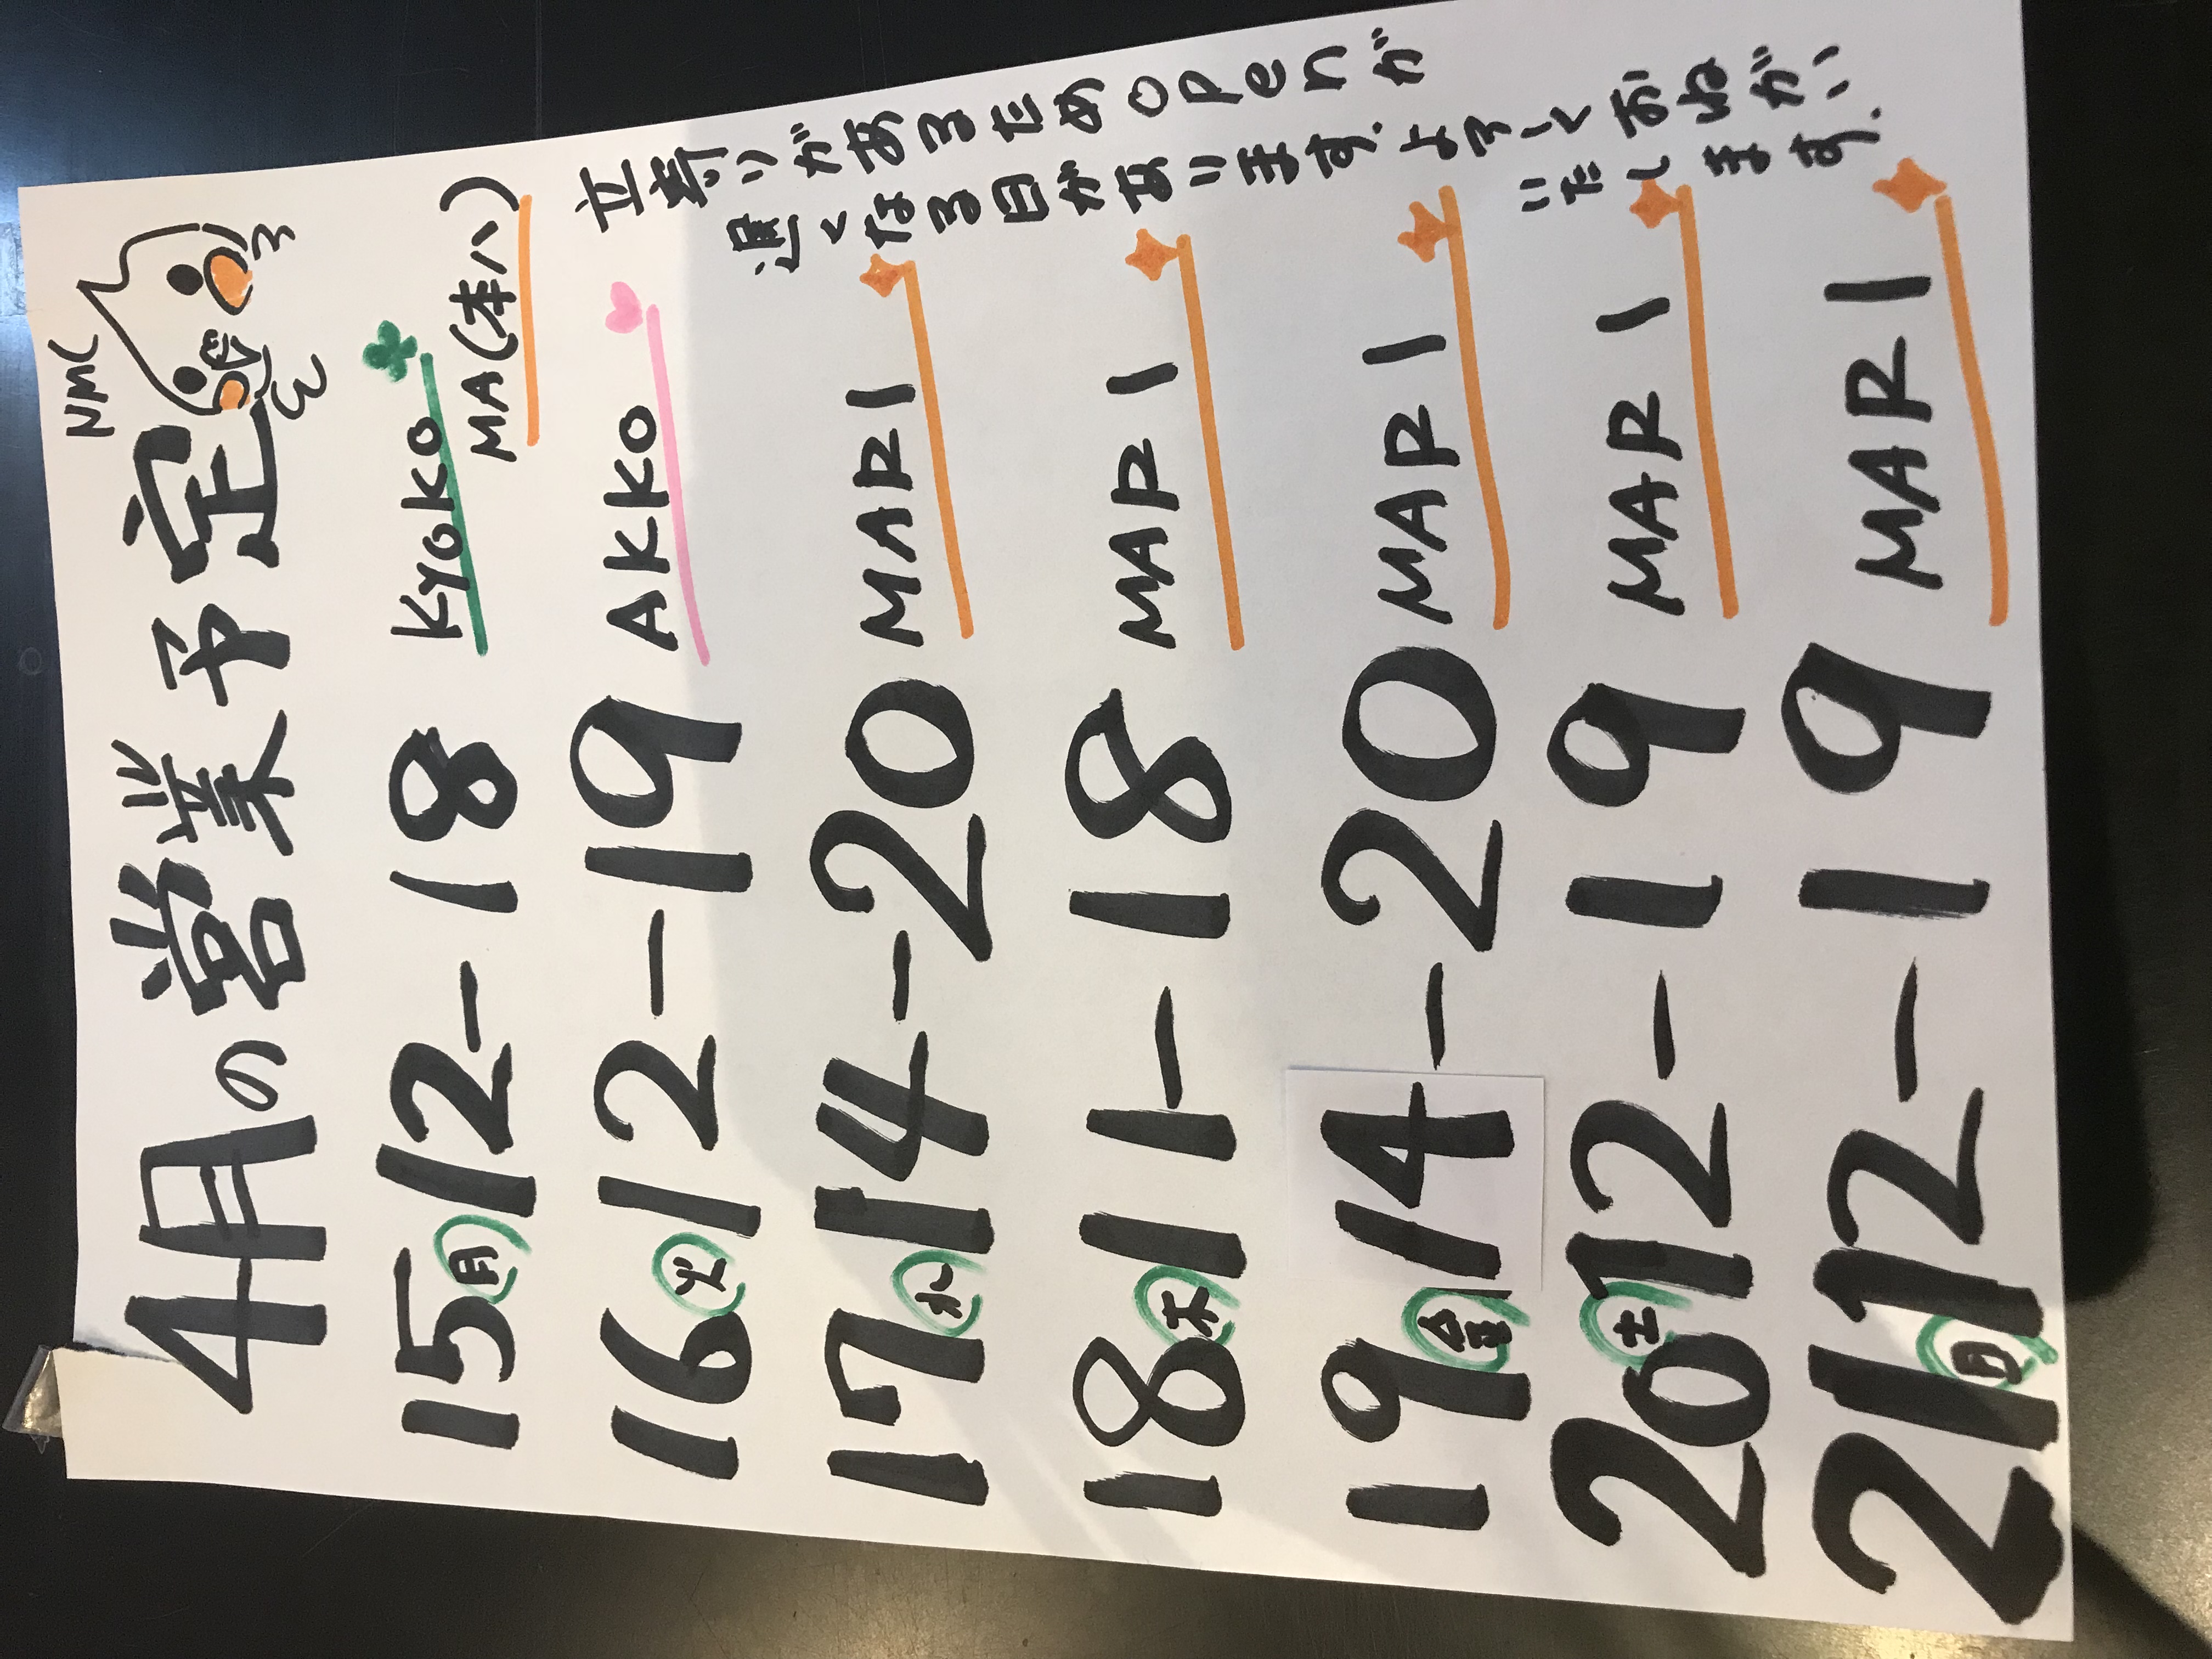 4月の営業予定
NMC
15 月 12-18 KYOKO
MA(本八)
16 火 12-19 AKKO
17 水 14-20 MARI
18 木 11-18 MARI
19 金 14-20 MARI
20 土 12-19 MARI
21 日 12-19 MARI
立寄りがあるためopenが
遅くなる日があります。よろしくおねがい
いたします。